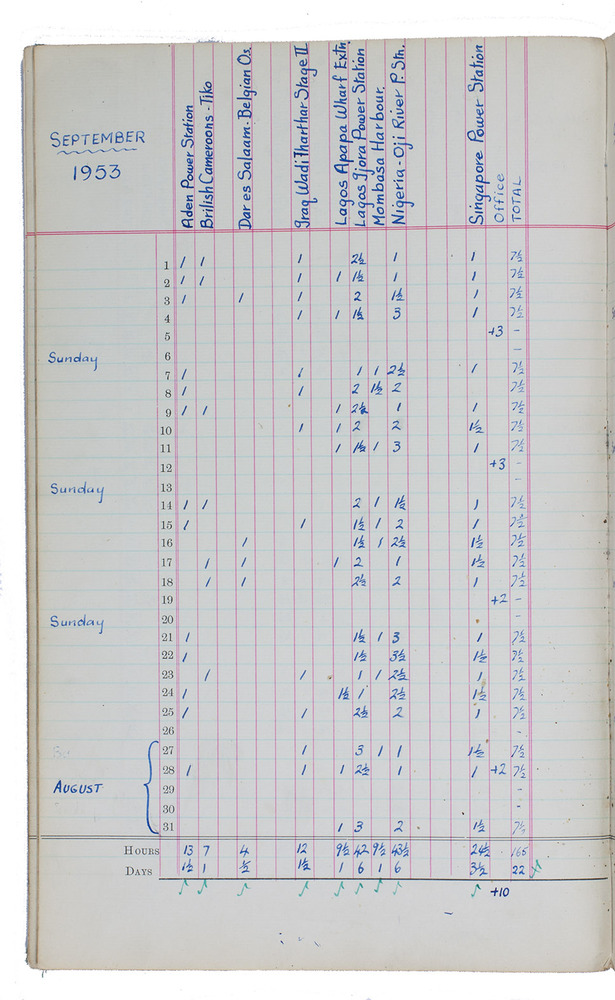 SEPTEMBER
1953
Aden Power Station
British Cameroons - Tiko
Dar es Salaam - Belgian Os.
Iraq Wadi Tharthar Stage II
Lagos Apapa Wharf Extn.
Lagos Ijora Power Station
Mombasa Harbour.
Nigeria - Oji River P. Stn.
Singapore Power Station
Office
TOTAL
1 1 1 1 2½ 1 1 7½
2 1 1 1 1 1½ 1 1 7½
3 1 1 1 2 1½ 1 7½
4 1 1 1½ 3 1 7½
5 +3 -
Sunday 6 -
7 1 1 1 1 2½ 1 7½
8 1 1 2 1½ 2 7½
9 1 1 1 2½ 1 1 7½
10 1 1 2 2 1½ 7½
11 1 1½ 1 3 1 7½
12 +3 -
Sunday 13 -
14 1 1 2 1 1½ 1 7½
15 1 1 1½ 1 2 1 7½
16 1 1½ 1 2½ 1½ 7½
17 1 1 1 2 1 1½ 7½
18 1 1 2½ 2 1 7½
19 +2 -
Sunday 20 -
21 1 1½ 1 3 1 7½
22 1 1½ 3½ 1½ 7½
23 1 1 1 1 2½ 1 7½
24 1 1½ 1 2½ 1½ 7½
25 1 1 2½ 2 1 7½
26 -
27 1 3 1 1 1½ 7½
28 1 1 1 2½ 1 1 +2 7½
AUGUST 29 -
30 -
31 1 3 2 1½ 7½
HOURS 13 7 4 12 9½ 42 9½ 43½ 24½ 165
DAYS 1½ 1 ½ 1½ 1 6 1 6 3½ 22
+10